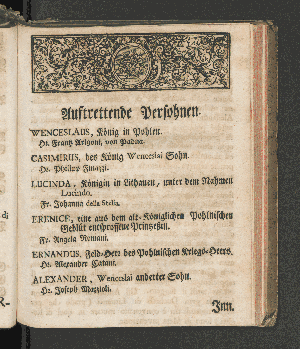 Aufftrettende Persohnen.
WENCESLAUS, König in Pohlen.
Hr. Frantz Arigoni, von Padua.
CASIMIRUS, des König Wenceslai Sohn.
Hr. Philipp Finazzi.
LUCINDA, Königin in Lithauen, unter dem Nahmen
Lucindo.
Fr. Johanna della Stella.
ERENICE, eine aus dem alt-Königlichen Pohlnischen
Geblüt entsprossene Printzeßin.
Fr. Angela Romani.
ERNANDUS, Feld-Herr des Pohlnischen Kriegs-Heers.
Hr. Alexander Catani.
ALEXANDER, Wenceslai anderter Sohn.
Hr. Joseph Mazzioli.
Inn.